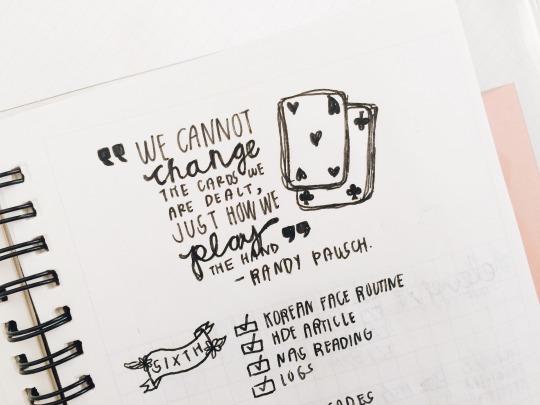 " WE CANNOT
change
THE CARDS WE
ARE DEALT,
JUST HOW WE
play
THE HAND "
- RANDY PAUSCH.
SIXTH
KOREAN FACE ROUTINE
HDE ARTICLE
NAG READING
LOGS